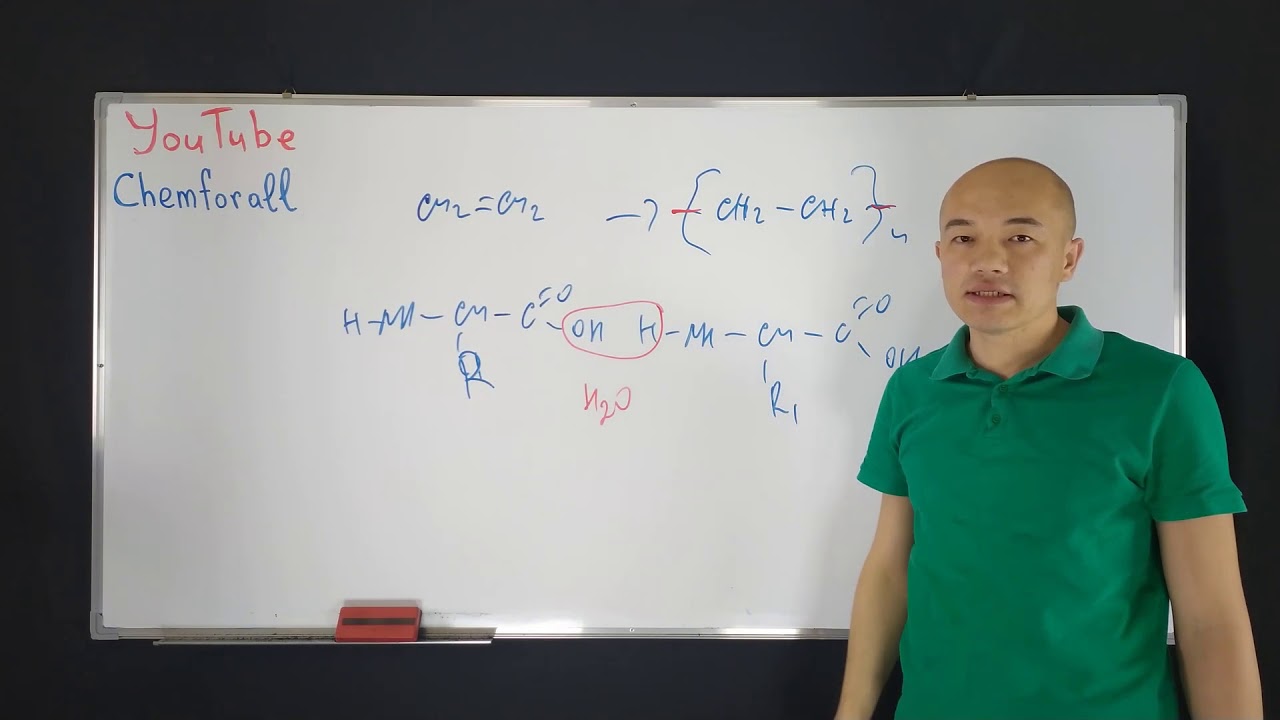 YouTube
Chemforall
CH2=CH2 → {CH2-CH2}n
H-NH-CH-C=O OH H-NH-CH-C=O OH
R H2O R1